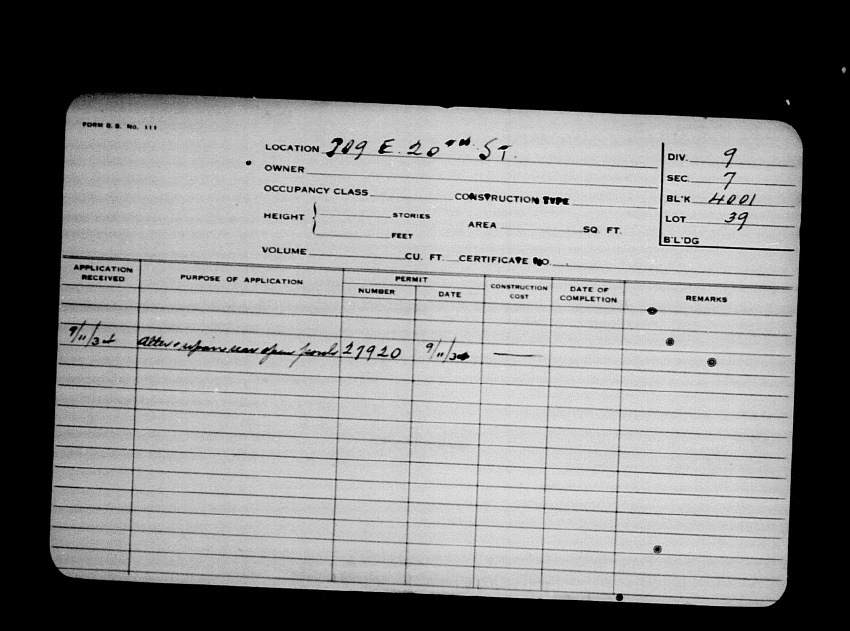 FORM B. B. No. 111
LOCATION 209 E. 20TH ST.
OWNER
OCCUPANCY CLASS CONSTRUCTION TYPE
HEIGHT STORIES
FEET
AREA SQ. FT.
VOLUME CU. FT. CERTIFICATE NO.
DIV. 9
SEC. 7
BL'K 4001
LOT 39
B'L'DG
APPLICATION RECEIVED
PURPOSE OF APPLICATION
PERMIT
NUMBER
DATE
CONSTRUCTION COST
DATE OF COMPLETION
REMARKS
Alter & repair rear open porch 27920